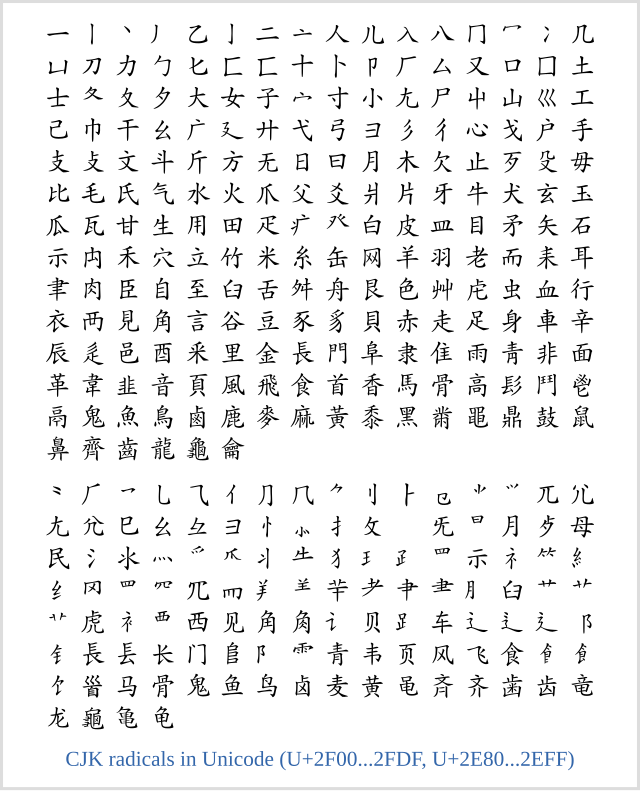 一 丨 丶 丿 乙 亅 二 亠 人 儿 入 八 冂 冖 冫 几
凵 刀 力 勹 匕 匚 匸 十 卜 卩 厂 厶 又 口 囗 土
士 夂 夊 夕 大 女 子 宀 寸 小 尢 尸 屮 山 巛 工
己 巾 干 幺 广 廴 廾 弋 弓 彐 彡 彳 心 戈 户 手
支 攴 文 斗 斤 方 无 日 曰 月 木 欠 止 歹 殳 毋
比 毛 氏 气 水 火 爪 父 爻 爿 片 牙 牛 犬 玄 玉
瓜 瓦 甘 生 用 田 疋 疒 癶 白 皮 皿 目 矛 矢 石
示 禸 禾 穴 立 竹 米 糸 缶 网 羊 羽 老 而 耒 耳
聿 肉 臣 自 至 臼 舌 舛 舟 艮 色 艸 虍 虫 血 行
衣 襾 見 角 言 谷 豆 豕 豸 貝 赤 走 足 身 車 辛
辰 辵 邑 酉 釆 里 金 長 門 阜 隶 隹 雨 青 非 面
革 韋 韭 音 頁 風 飛 食 首 香 馬 骨 高 髟 鬥 鬯
鬲 鬼 魚 鳥 鹵 鹿 麥 麻 黃 黍 黑 黹 黽 鼎 鼓 鼠
鼻 齊 齒 龍 龜 龠
⺀ ⺁ ⺂ ⺃ ⺄ ⺅ ⺆ ⺇ ⺈ ⺉ ⺊ ⺋ ⺌ ⺍ ⺎ ⺏
⺐ ⺑ ⺒ ⺓ ⺔ ⺕ ⺖ ⺗ ⺘ ⺙ ⺛ ⺜ ⺝ ⺞ ⺟
⺠ ⺡ ⺢ ⺣ ⺤ ⺥ ⺦ ⺧ ⺨ ⺩ ⺪ ⺫ ⺬ ⺭ ⺮ ⺯
⺰ ⺱ ⺲ ⺳ ⺴ ⺵ ⺶ ⺷ ⺸ ⺹ ⺺ ⺻ ⺼ ⺽ ⺾ ⺿
⻀ ⻁ ⻂ ⻃ ⻄ ⻅ ⻆ ⻇ ⻈ ⻉ ⻊ ⻋ ⻌ ⻍ ⻎ ⻏
⻐ ⻑ ⻒ ⻓ ⻔ ⻕ ⻖ ⻗ ⻘ ⻙ ⻚ ⻛ ⻜ ⻝ ⻞ ⻟
⻠ ⻡ ⻢ ⻣ ⻤ ⻥ ⻦ ⻧ ⻨ ⻩ ⻪ ⻫ ⻬ ⻭ ⻮ ⻯
⻰ ⻱ ⻲ ⻳
CJK radicals in Unicode (U+2F00...2FDF, U+2E80...2EFF)